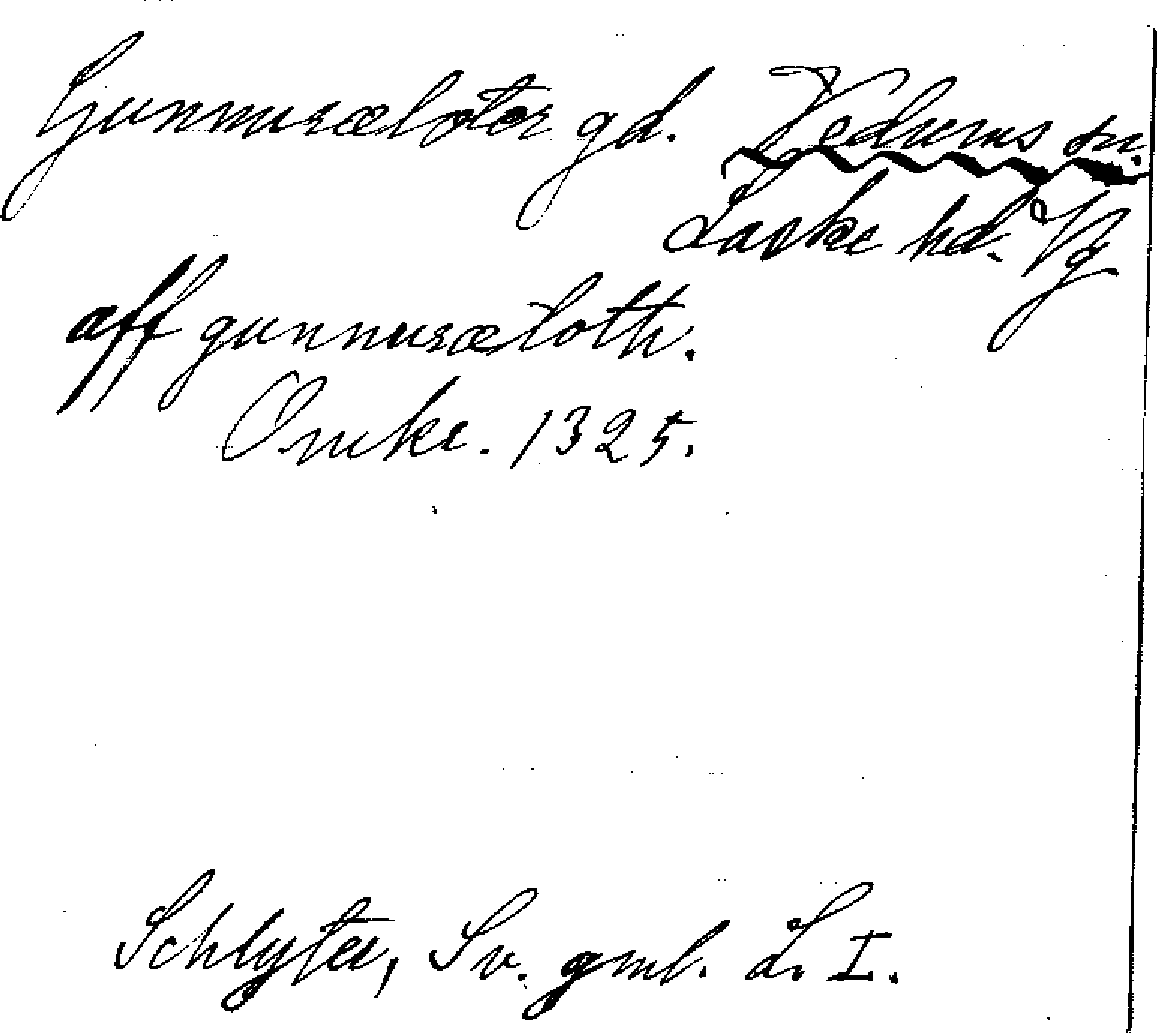 Gunnusæloter gd. Vedums sn.
Laske hd. Vg
aff gunnusæloth.
Omkr. 1325.
Schlyter, Sv. gml. L. I.